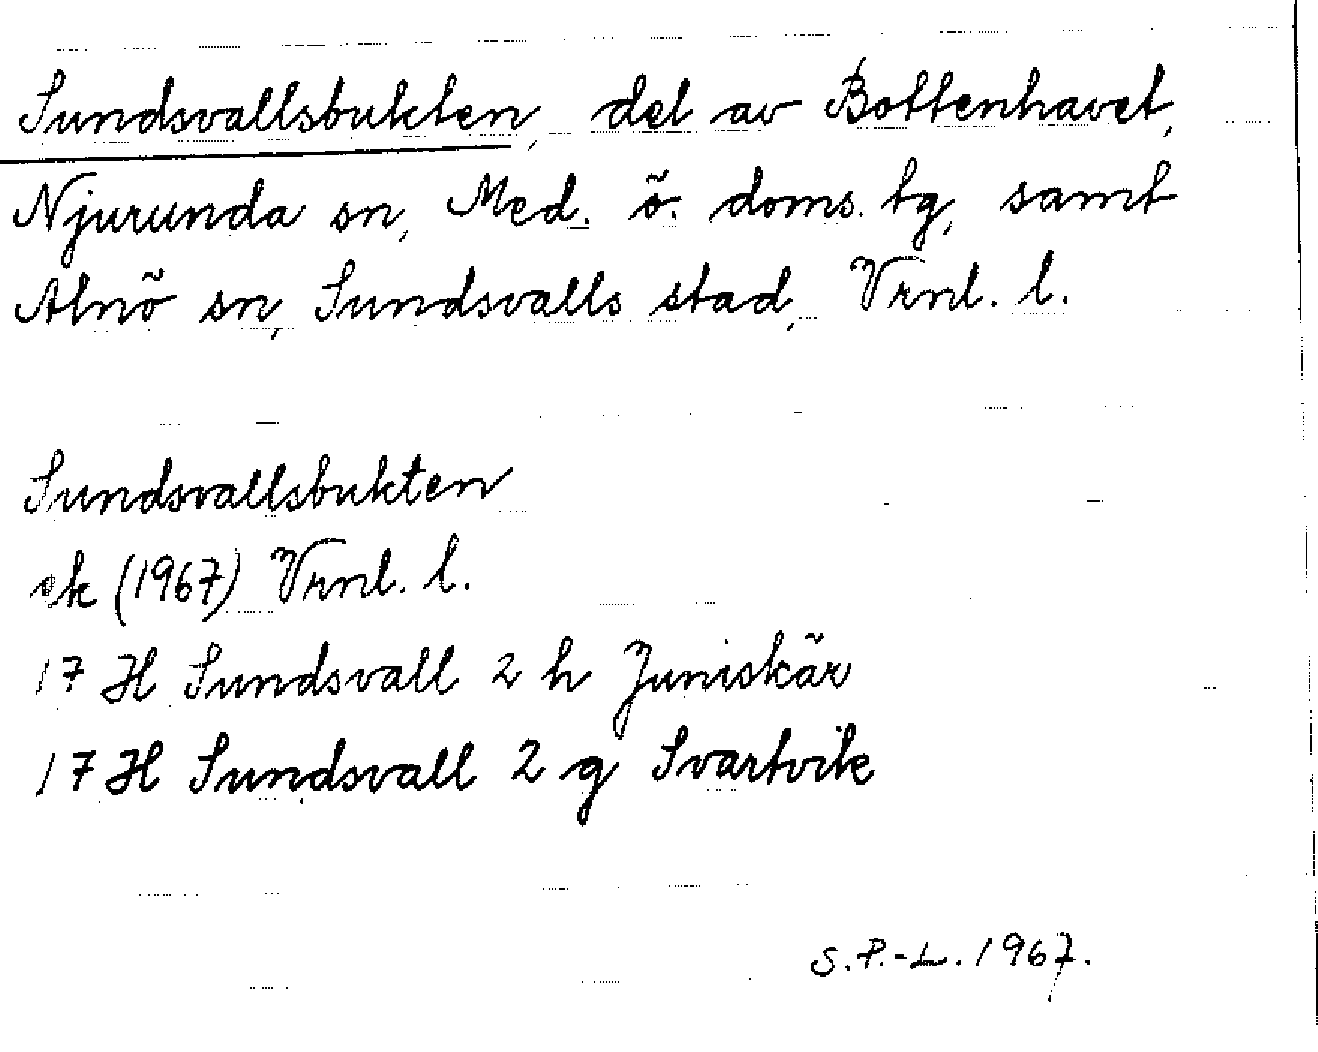 Sundsvallsbukten, del av Bottenhavet,
Njurunda sn, Med. ö. doms. tg, samt
Alnö sn, Sundsvalls stad, Vrnl. l.
Sundsvallsbukten
ek (1967) Vrnl. l.
17 H Sundsvall 2 h Juniskär
17 H Sundsvall 2 g Svartvik
S.P.-L. 1967.